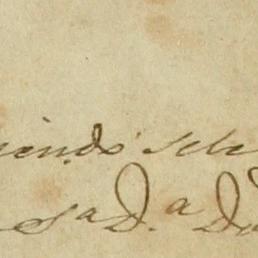 iendo sele
Sa D.a Do